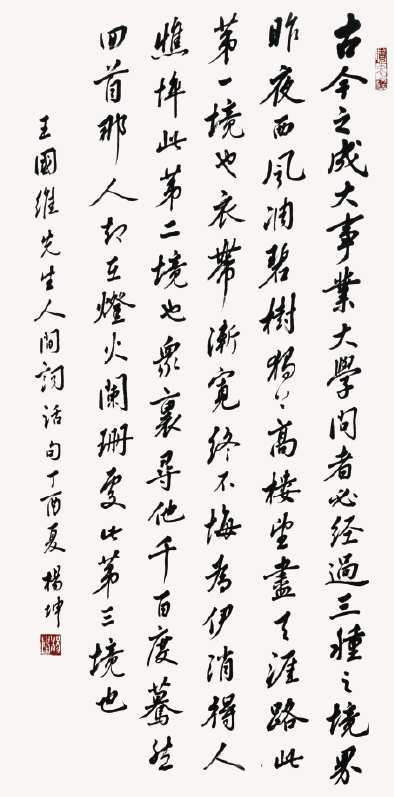 古今之成大事業大學問者必经過三種之境界
昨夜西风凋碧樹獨上高楼望盡天涯路此
第一境也衣帶漸寬終不悔為伊消得人
憔悴此第二境也眾裏尋他千百度驀然
回首那人却在燈火阑珊處此第三境也
王國維先生人間詞話句丁酉夏楊坤